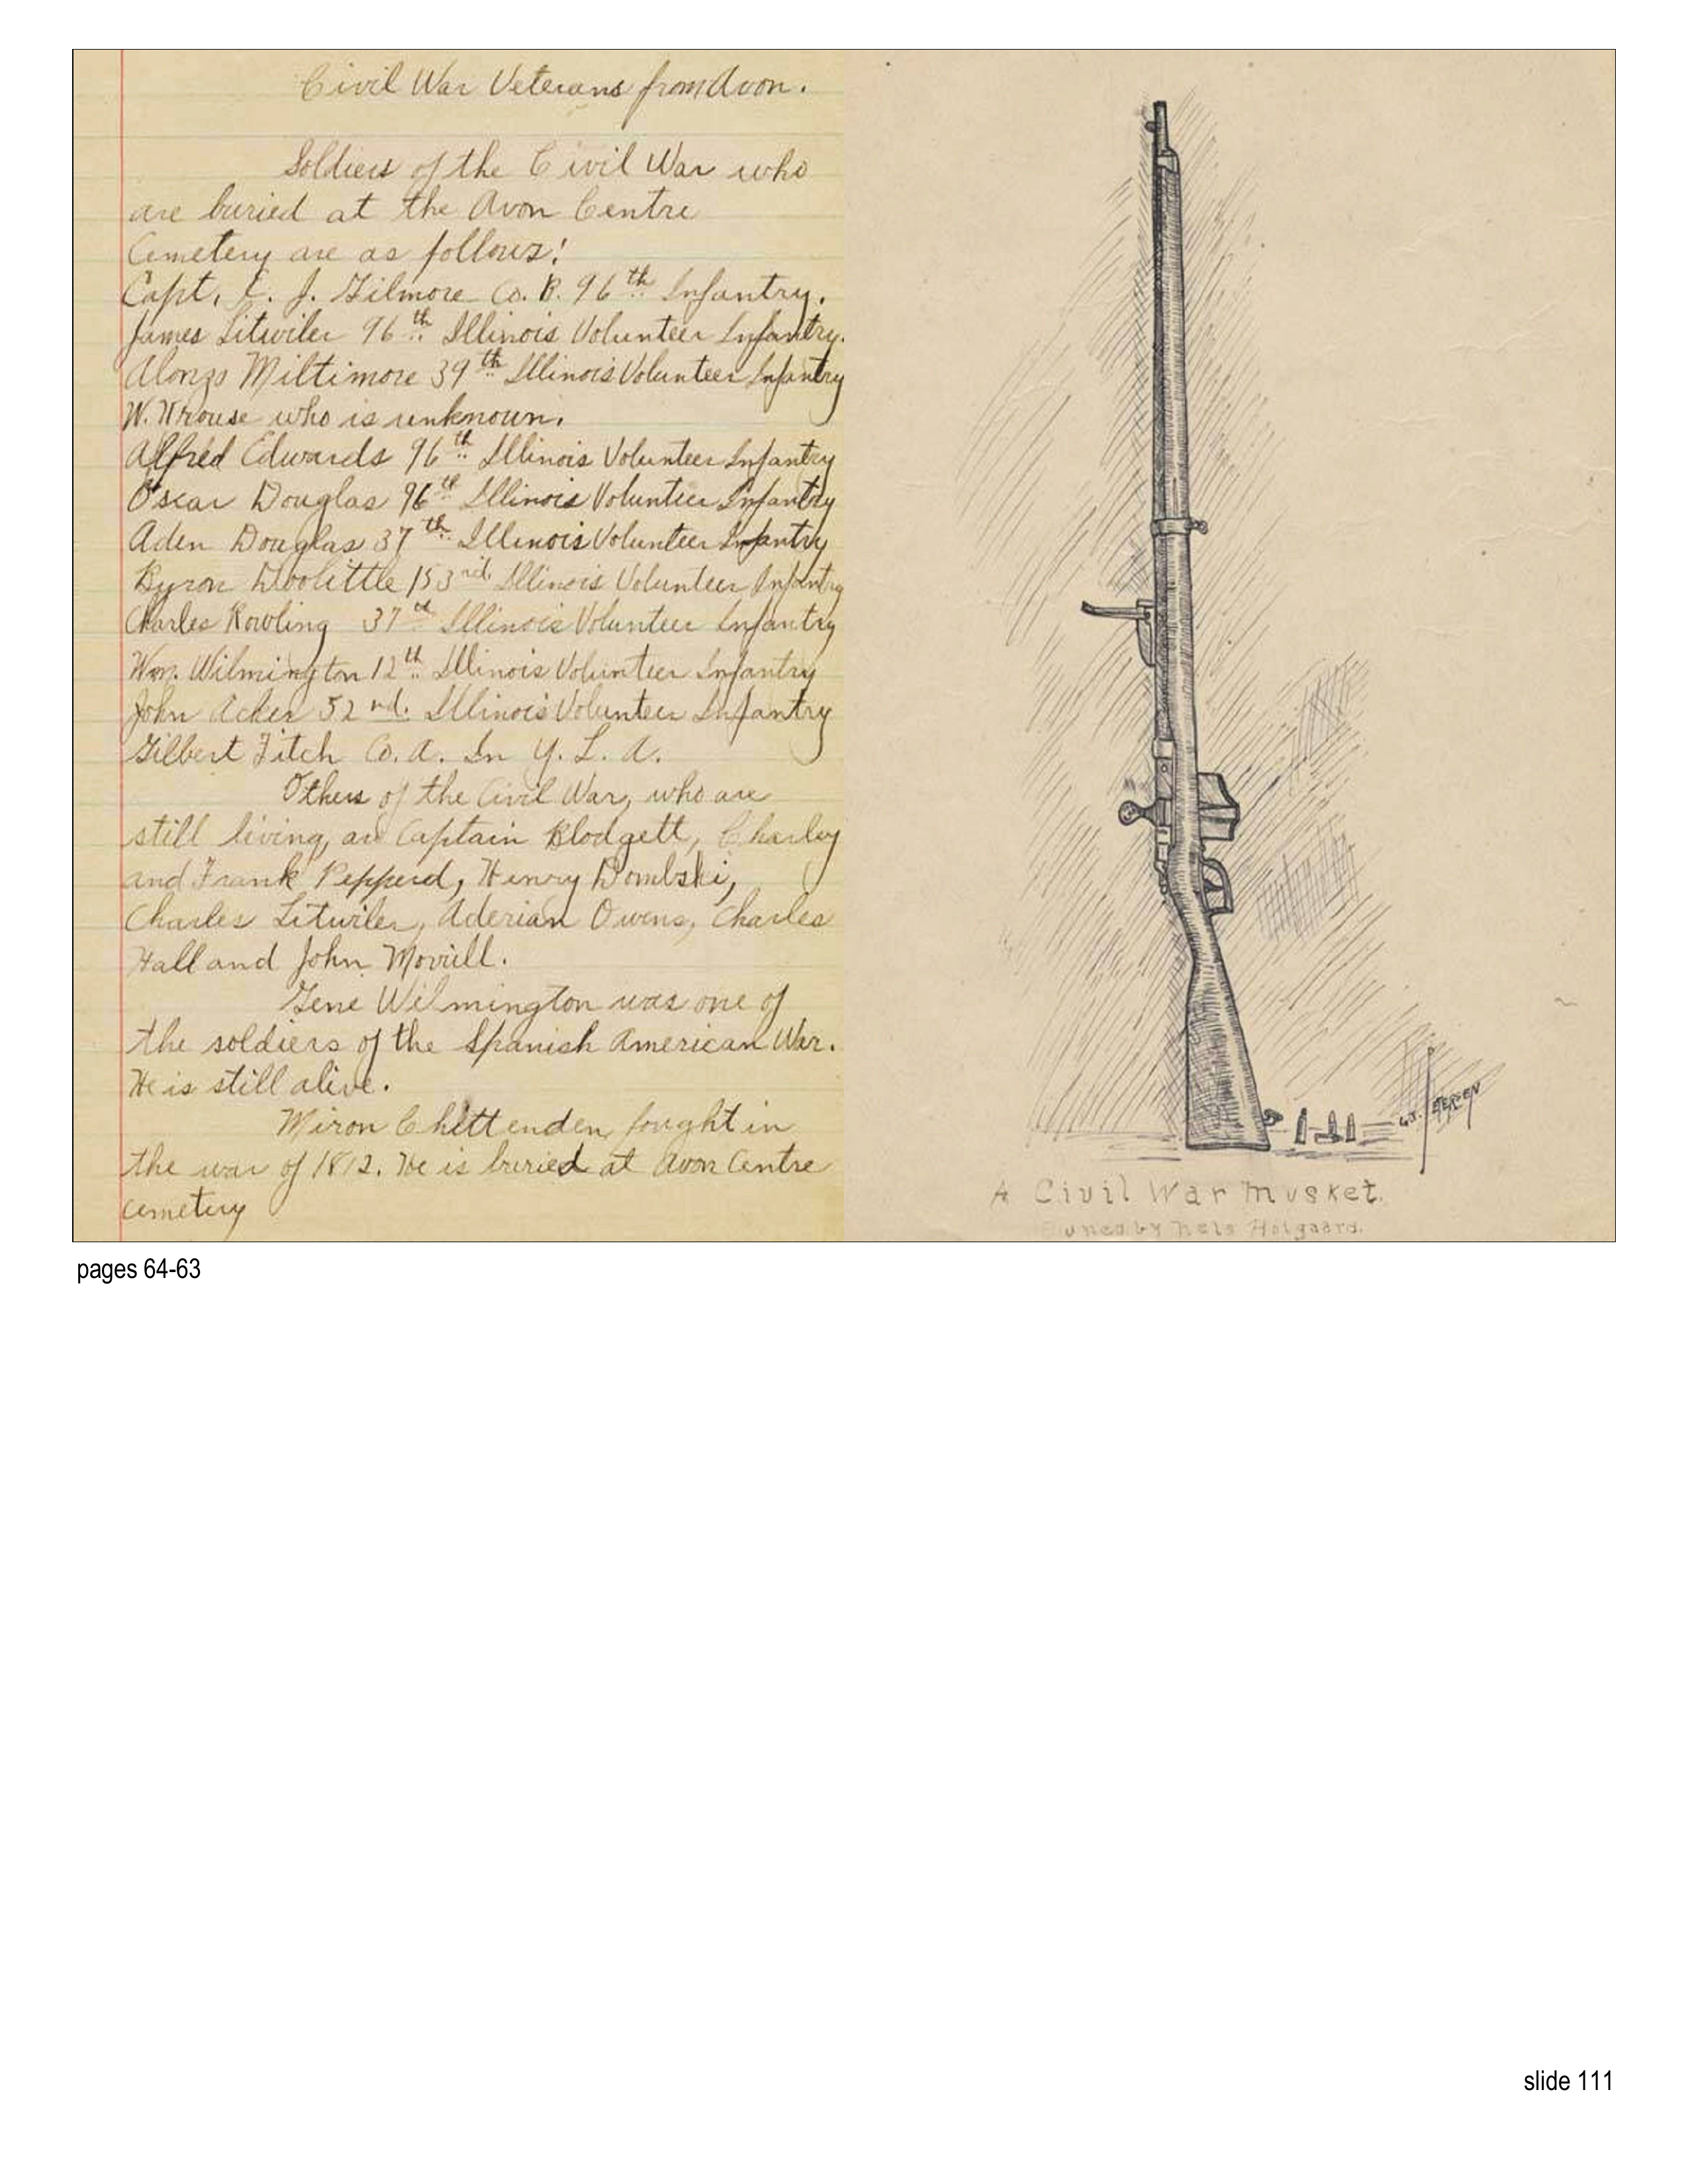 Civil War Veterans from Avon.
Soldiers of the Civil War who
are buried at the Avon Centre
Cemetery are as follows:
Capt. E. J. Gilmore Co. B. 96th Infantry.
James Litwiler 96th Illinois Volunteer Infantry.
Alonzo Miltimore 39th Illinois Volunteer Infantry
W. Krouse who is unknown.
Alfred Edwards 96th Illinois Volunteer Infantry
Oscar Douglas 96th Illinois Volunteer Infantry
Aden Douglas 37th Illinois Volunteer Infantry
Byron Doolittle 153rd Illinois Volunteer Infantry
Charles Rowling 37th Illinois Volunteer Infantry
Wm. Wilmington 12th Illinois Volunteer Infantry
John Acker 52nd. Illinois Volunteer Infantry
Gilbert Fitch Co. A. In Y. L. A.
Others of the Civil War, who are
still living, are Captain Blodgett, Charley
and Frank Pepperd, Henry Dombski,
Charles Litwiler, Aderian Owens, Charles
Hall and John Morrill.
Gene Wilmington was one of
the soldiers of the Spanish American War.
He is still alive.
Miron Chittenden fought in
the war of 1812. He is buried at Avon Centre
cemetery
A Civil War Musket.
Owned by Nels Holgaard.
pages 64-63
slide 111